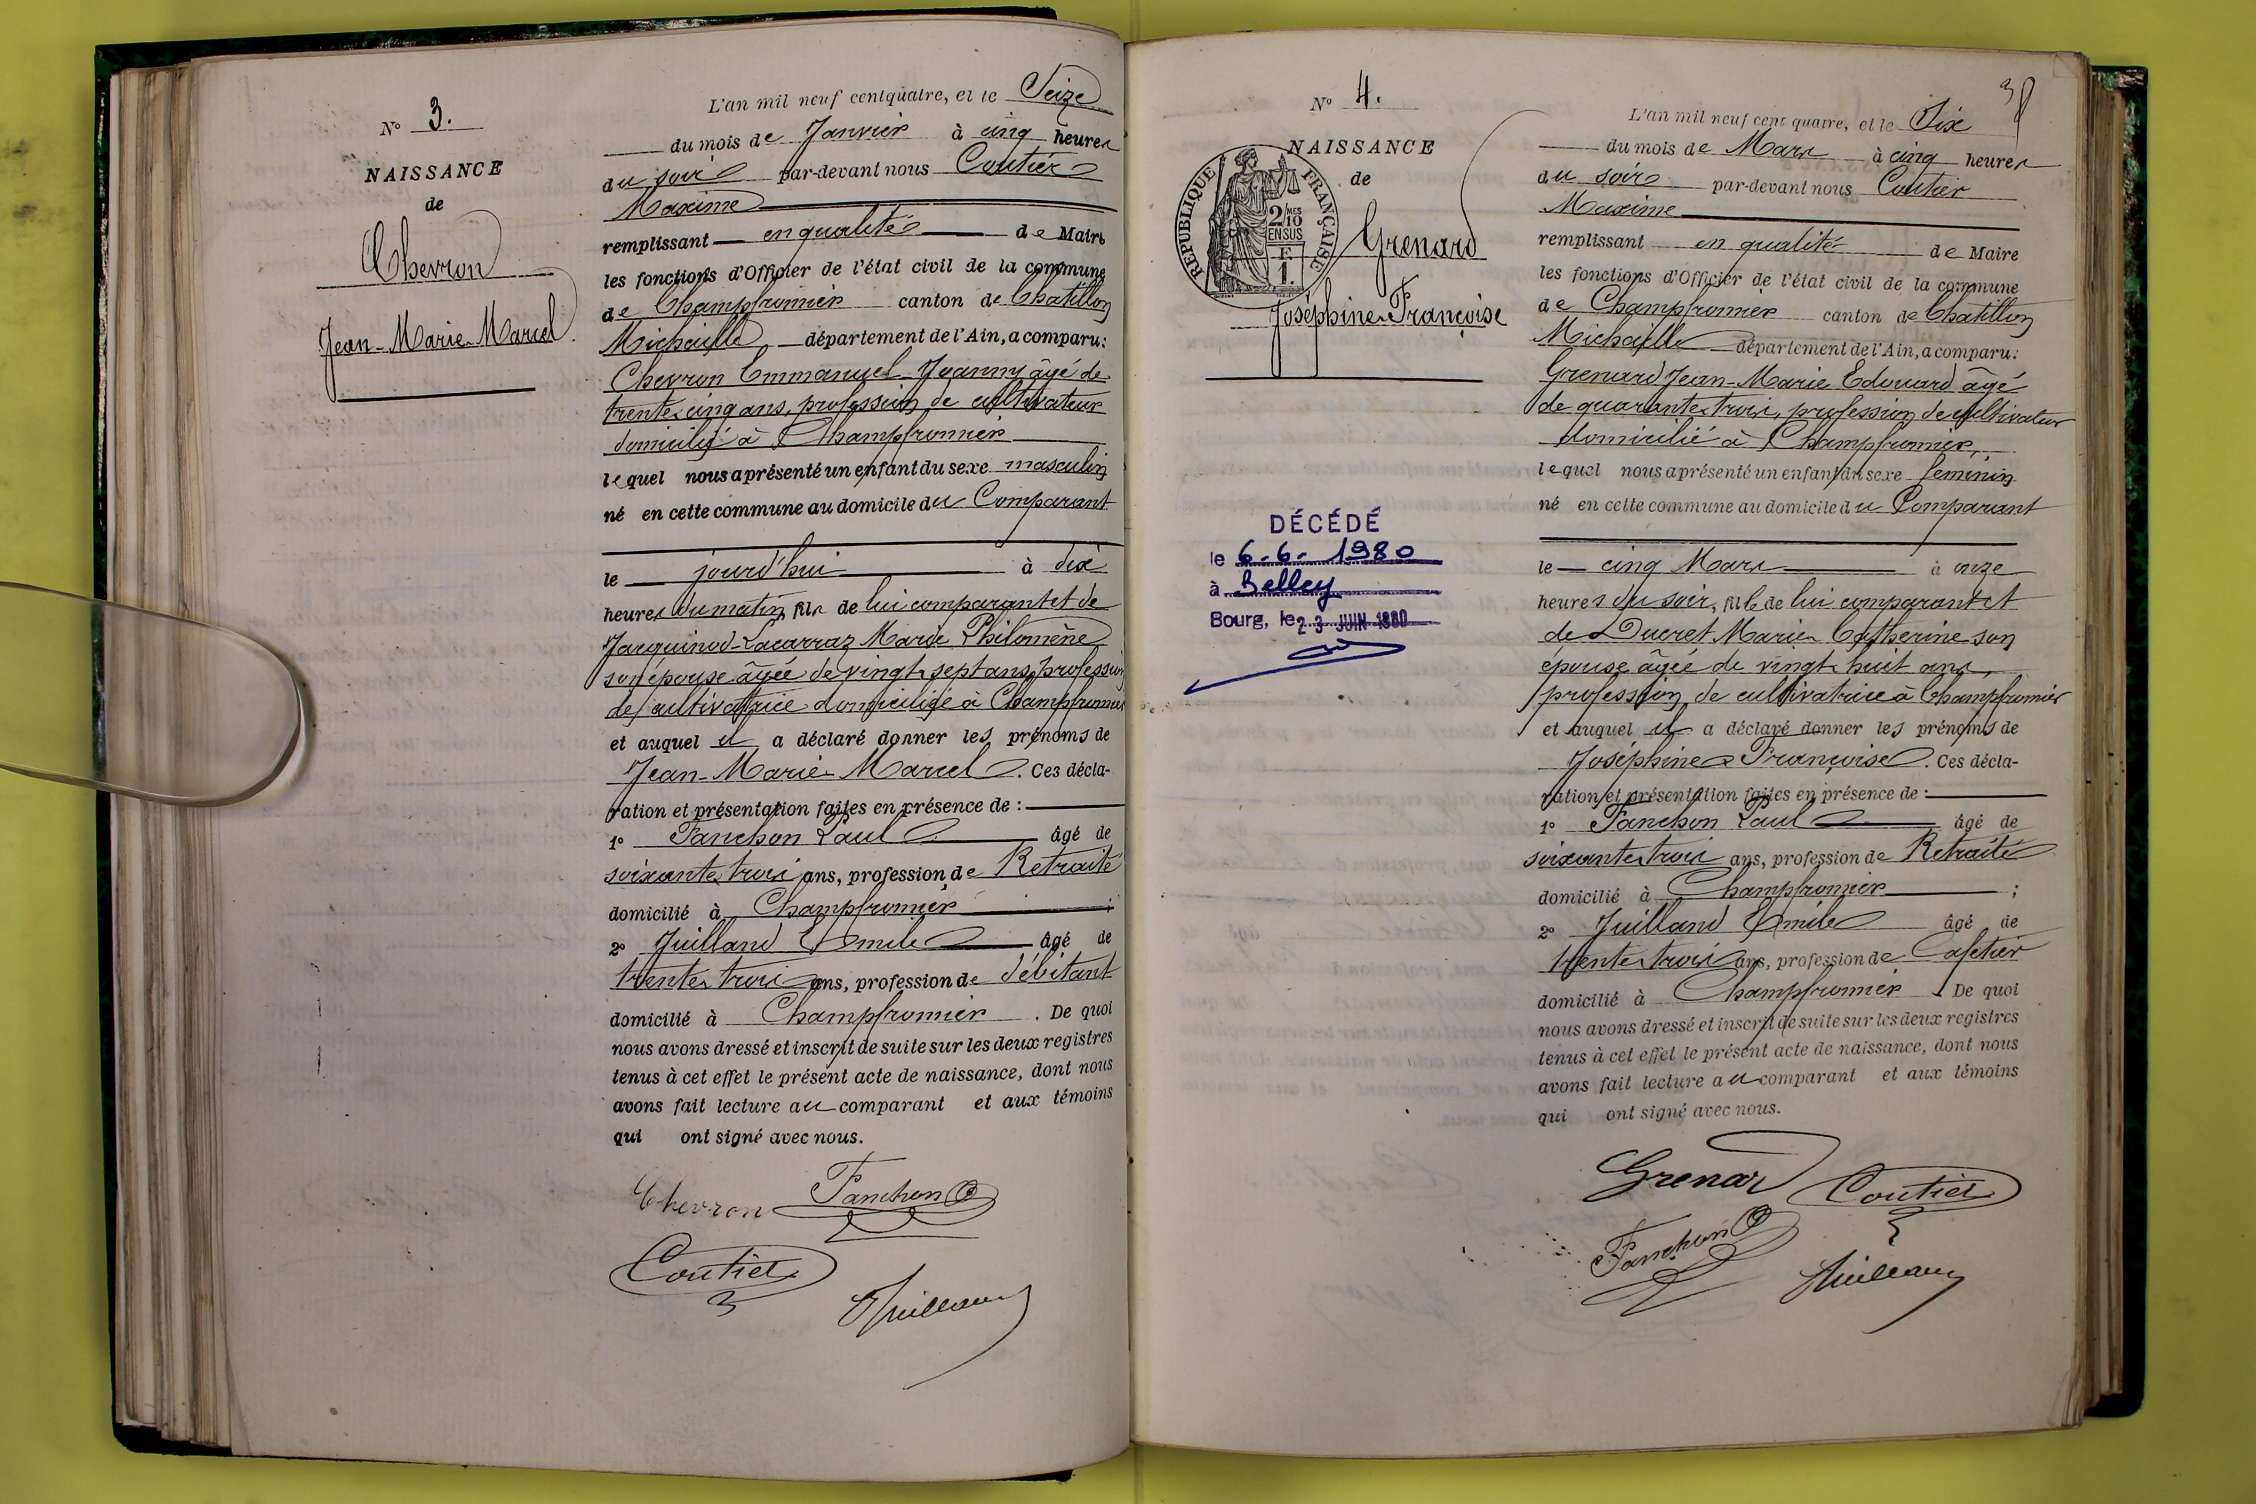 N° 3.
NAISSANCE
de
Chevron
Jean-Marie-Marcel
L'an mil neuf cent quatre, et le Seize
du mois de Janvier à cinq heures
du soir par-devant nous Coutier
Maxime
remplissant en qualité de Maire
les fonctions d'Officier de l'état civil de la commune
de Champfromier canton de Chatillon
Michaille département de l'Ain, a comparu:
Chevron Emmanuel Joanny âgé de
trente cinq ans, profession de cultivateur
domicilié à Champfromier
lequel nous a présenté un enfant du sexe masculin
né en cette commune au domicile du Comparant
le jourd'hui à dix
heures du matin, fils de lui comparant et de
Jacquinod-Lacarraz Marie Philomène
son épouse âgée de vingt sept ans, profession
de cultivatrice domiciliée à Champfromier
et auquel il a déclaré donner les prénoms de
Jean-Marie-Marcel. Ces décla-
ration et présentation faites en présence de :
1° Fanchon Paul âgé de
soixante trois ans, profession de Retraité
domicilié à Champfromier ;
2° Juilland Emile âgé de
trente trois ans, profession de débitant
domicilié à Champfromier. De quoi
nous avons dressé et inscrit de suite sur les deux registres
tenus à cet effet le présent acte de naissance, dont nous
avons fait lecture au comparant et aux témoins
qui ont signé avec nous.
Chevron Fanchon
Coutier
Juilland
38
N° 4.
NAISSANCE
de
Grenard
Joséphine-Françoise
RÉPUBLIQUE FRANÇAISE
2/10 MES
EN SUS
F.
1.
DÉCÉDÉ
le 6-6-1980
à Belley
Bourg, le 23 JUIN 1980
L'an mil neuf cent quatre, et le Six
du mois de Mars à cinq heures
du soir par-devant nous Coutier
Maxime
remplissant en qualité de Maire
les fonctions d'Officier de l'état civil de la commune
de Champfromier canton de Chatillon
Michaille département de l'Ain, a comparu:
Grenard Jean-Marie Edouard âgé
de quarante trois, profession de cultivateur
domicilié à Champfromier,
lequel nous a présenté un enfant du sexe féminin
né en cette commune au domicile du Comparant
le cinq Mars à onze
heures du soir, fille de lui comparant et
de Ducret Marie Catherine son
épouse âgée de vingt huit ans,
profession de cultivatrice à Champfromier
et auquel il a déclaré donner les prénoms de
Joséphine Françoise. Ces décla-
ration et présentation faites en présence de :
1° Fanchon Paul âgé de
soixante trois ans, profession de Retraité
domicilié à Champfromier ;
2° Juilland Emile âgé de
trente trois ans, profession de Cafetier
domicilié à Champfromier. De quoi
nous avons dressé et inscrit de suite sur les deux registres
tenus à cet effet le présent acte de naissance, dont nous
avons fait lecture au comparant et aux témoins
qui ont signé avec nous.
Grenard Coutier
Fanchon
Juilland